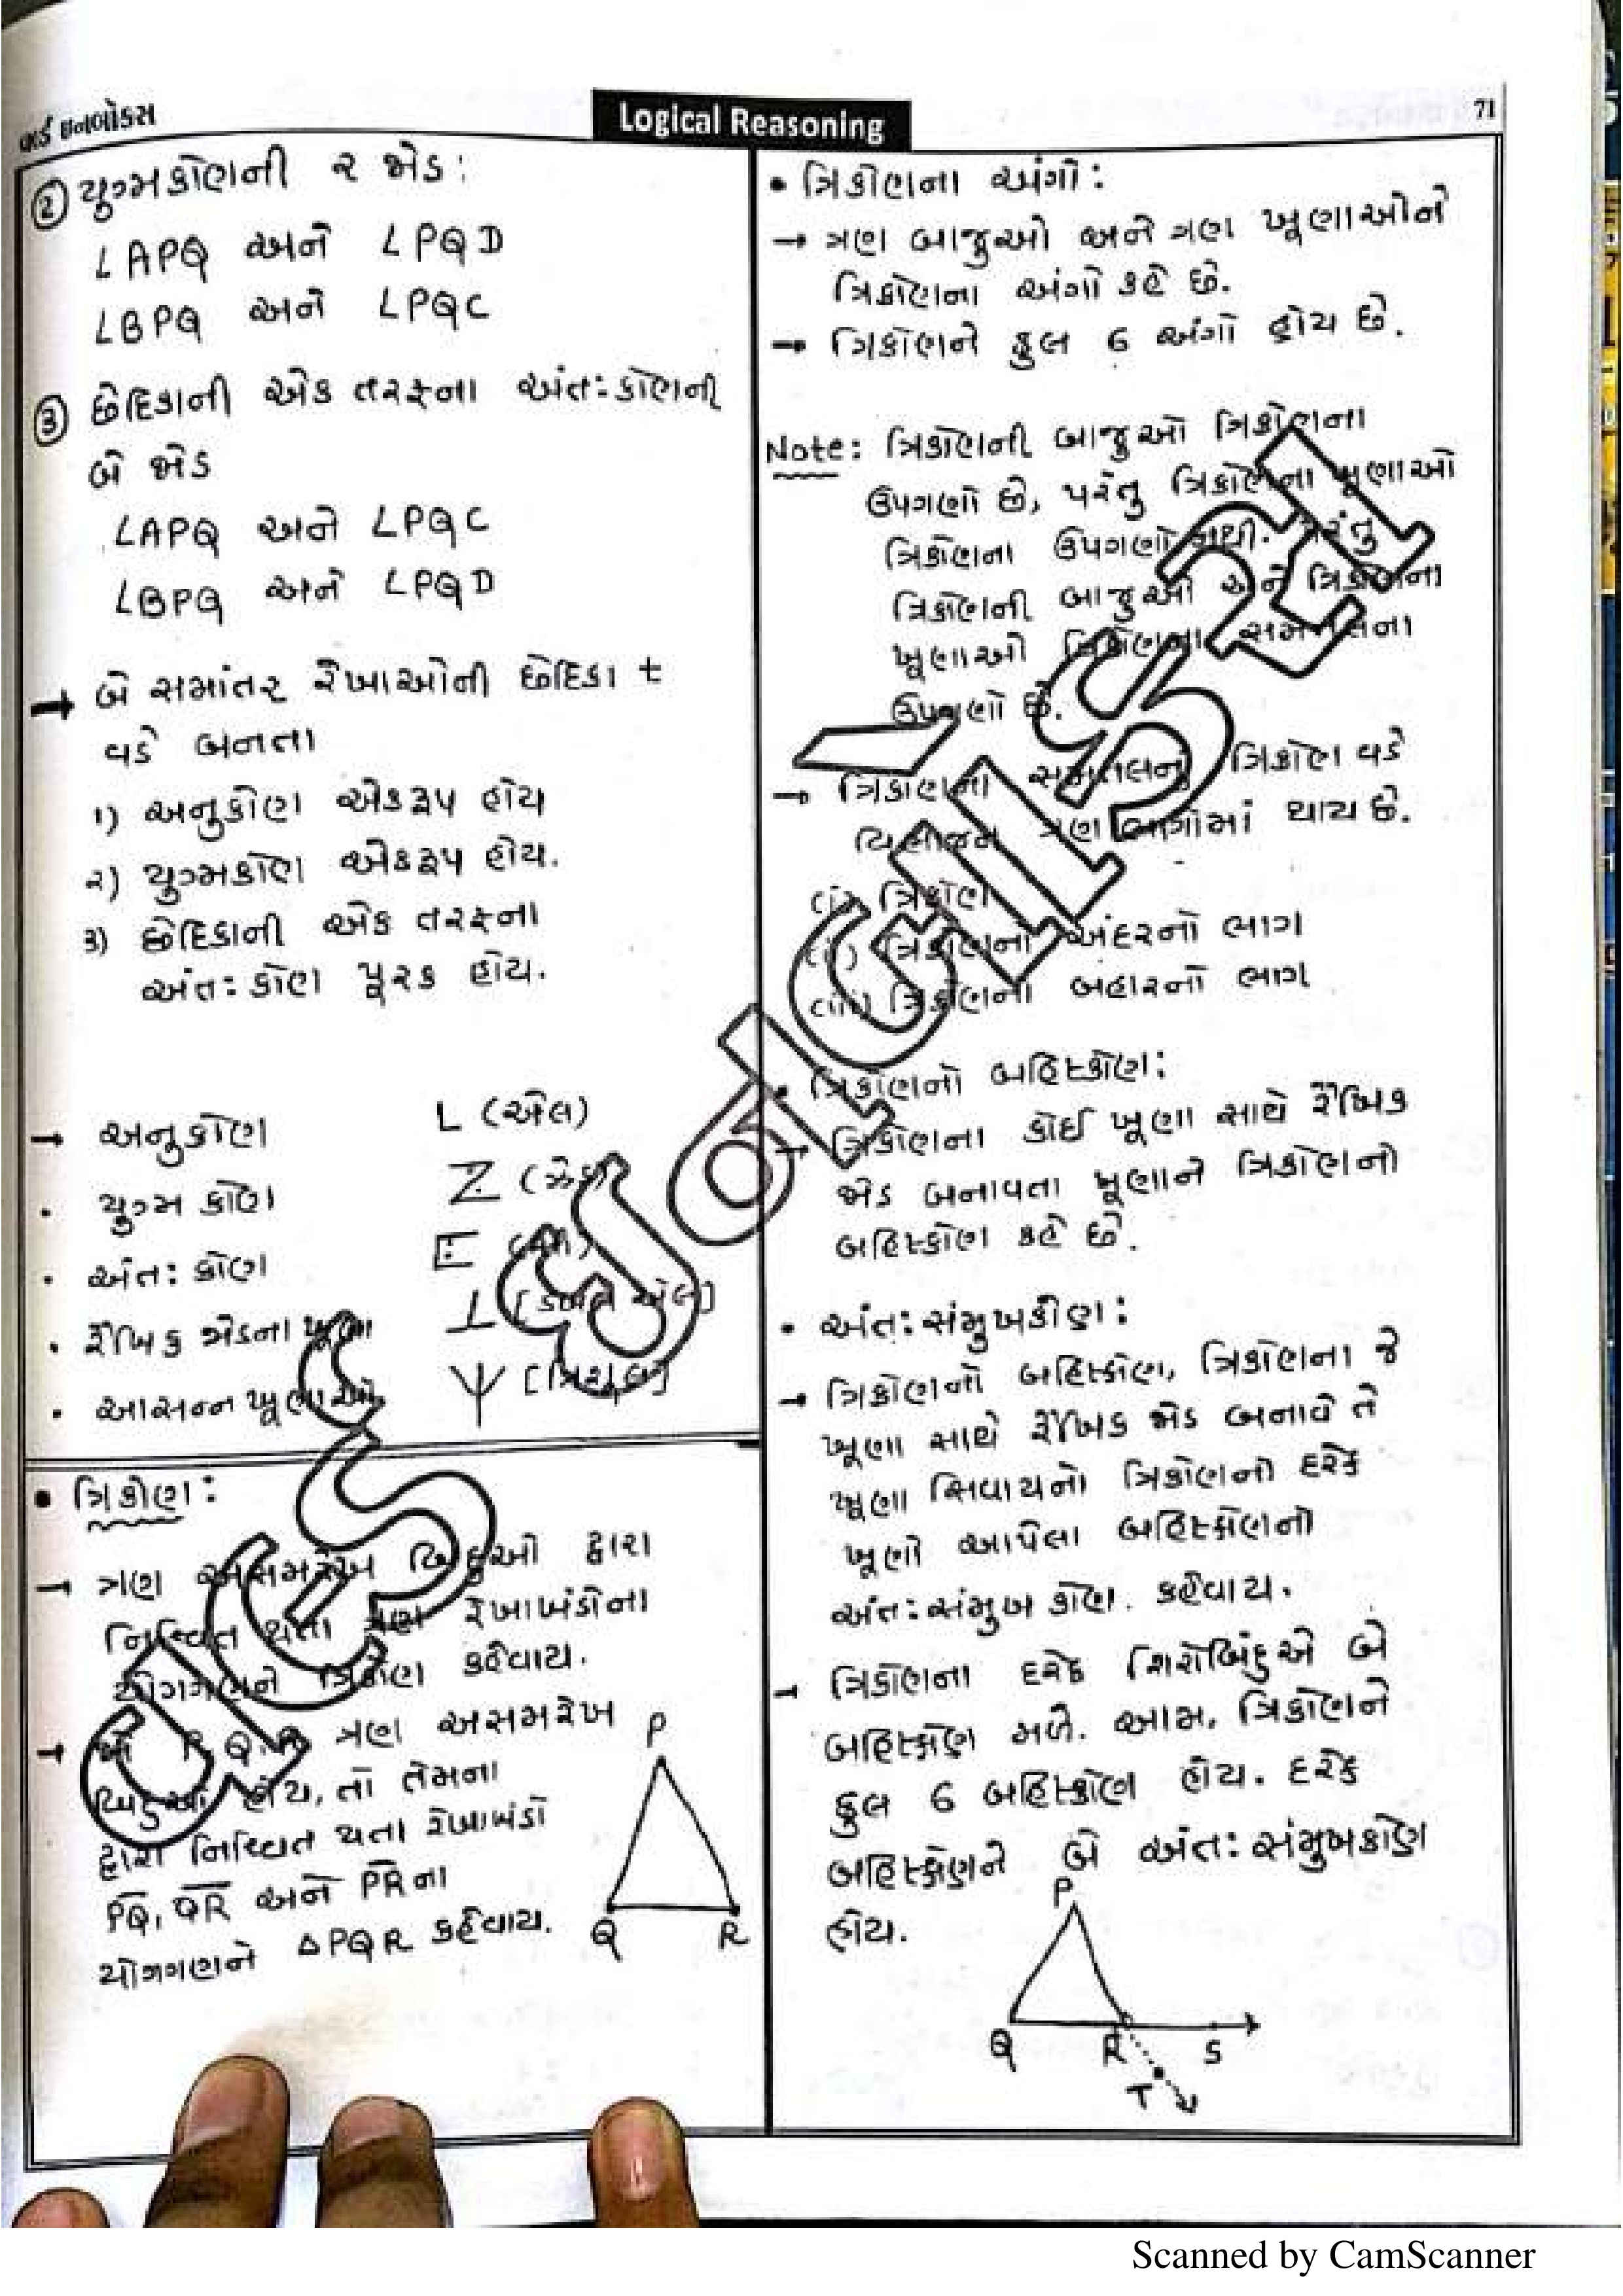 વર્લ્ડ ઇનબોક્સ
Logical Reasoning
71
② યુગ્મકોણની ૨ જોડ:
∠APQ અને ∠PQD
∠BPQ અને ∠PQC
③ છેદિકાની એક તરફના અંતઃકોણની
બે જોડ
∠APQ અને ∠PQC
∠BPQ અને ∠PQD
→ બે સમાંતર રેખાઓની છેદિકા t
વડે બનતા
૧) અનુકોણ એકરૂપ હોય
૨) યુગ્મકોણ એકરૂપ હોય.
૩) છેદિકાની એક તરફના
અંતઃકોણ પૂરક હોય.
→ અનુકોણ L (એલ)
• યુગ્મ કોણ Z (ઝેડ)
• અંતઃકોણ E
• રૈખિક જોડના ખૂણા ⊥ [ડબલ એલ]
• આસન્ન ખૂણાઓ Ψ [ત્રિશૂલ]
• ત્રિકોણ:
→ ત્રણ અસમરેખ બિંદુઓ દ્વારા
નિશ્ચિત થતા ત્રણ રેખાખંડોના
યોગગણને ત્રિકોણ કહેવાય.
→ જો P, Q, R ત્રણ અસમરેખ
બિંદુઓ હોય, તો તેમના
દ્વારા નિશ્ચિત થતા રેખાખંડો
P̅Q̅, Q̅R̅ અને P̅R̅ના
યોગગણને ΔPQR કહેવાય.
P
Q R
• ત્રિકોણના અંગો:
→ ત્રણ બાજુઓ અને ત્રણ ખૂણાઓને
ત્રિકોણના અંગો કહે છે.
→ ત્રિકોણને કુલ 6 અંગો હોય છે.
Note: ત્રિકોણની બાજુઓ ત્રિકોણના
ઉપગણો છે, પરંતુ ત્રિકોણના ખૂણાઓ
ત્રિકોણના ઉપગણો નથી. પરંતુ
ત્રિકોણની બાજુઓ અને ત્રિકોણના
ખૂણાઓ ત્રિકોણના સમતલના
ઉપગણો છે.
→ ત્રિકોણના સમતલનું ત્રિકોણ વડે
વિભાજન ત્રણ ભાગોમાં થાય છે.
(i) ત્રિકોણ
(ii) ત્રિકોણનો અંદરનો ભાગ
(iii) ત્રિકોણનો બહારનો ભાગ
• ત્રિકોણનો બહિષ્કોણ:
→ ત્રિકોણના કોઈ ખૂણા સાથે રૈખિક
જોડ બનાવતા ખૂણાને ત્રિકોણનો
બહિષ્કોણ કહે છે.
• અંતઃસંમુખકોણ:
→ ત્રિકોણનો બહિષ્કોણ, ત્રિકોણના જે
ખૂણા સાથે રૈખિક જોડ બનાવે તે
ખૂણા સિવાયનો ત્રિકોણનો દરેક
ખૂણો આપેલા બહિષ્કોણનો
અંતઃસંમુખ કોણ. કહેવાય.
→ ત્રિકોણના દરેક શિરોબિંદુએ બે
બહિષ્કોણ મળે. આમ, ત્રિકોણને
કુલ 6 બહિષ્કોણ હોય. દરેક
બહિષ્કોણને બે અંતઃસંમુખકોણ
હોય.
P
Q R S
T
Scanned by CamScanner